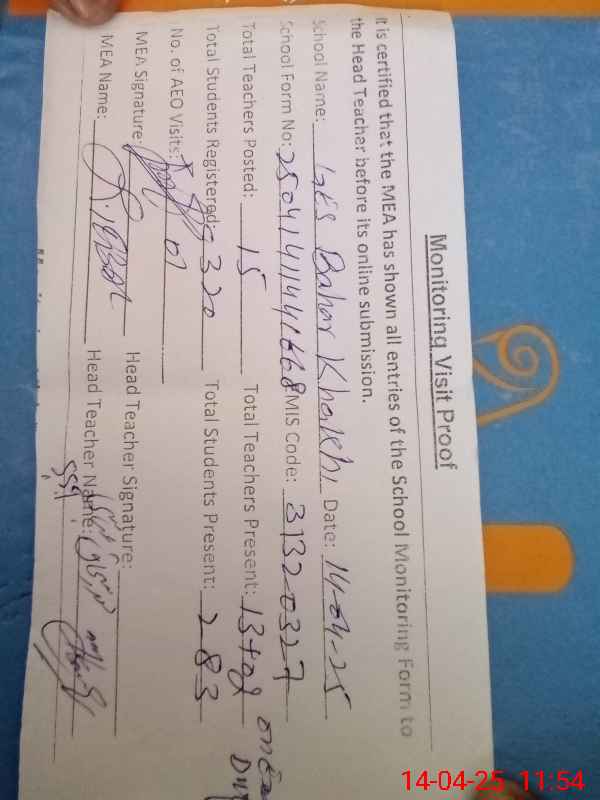 Monitoring Visit Proof
It is certified that the MEA has shown all entries of the School Monitoring Form to
the Head Teacher before its online submission.
School Name: GES Bahar Khokhi, Date: 14-04-25
School Form No: 250414111441668 EMIS Code: 31320327
Total Teachers Posted: 15 Total Teachers Present: 13+02 on Exam Duty
Total Students Registered: 320 Total Students Present: 283
No. of AEO Visits: 01
MEA Signature: Head Teacher Signature:
MEA Name: Head Teacher Name:
14-04-25 11:54